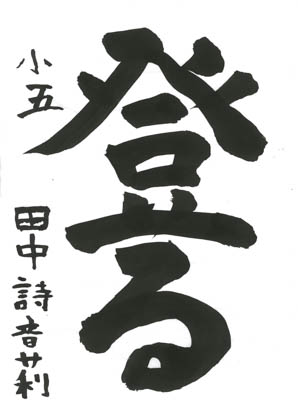 登る
小五
田中詩音莉